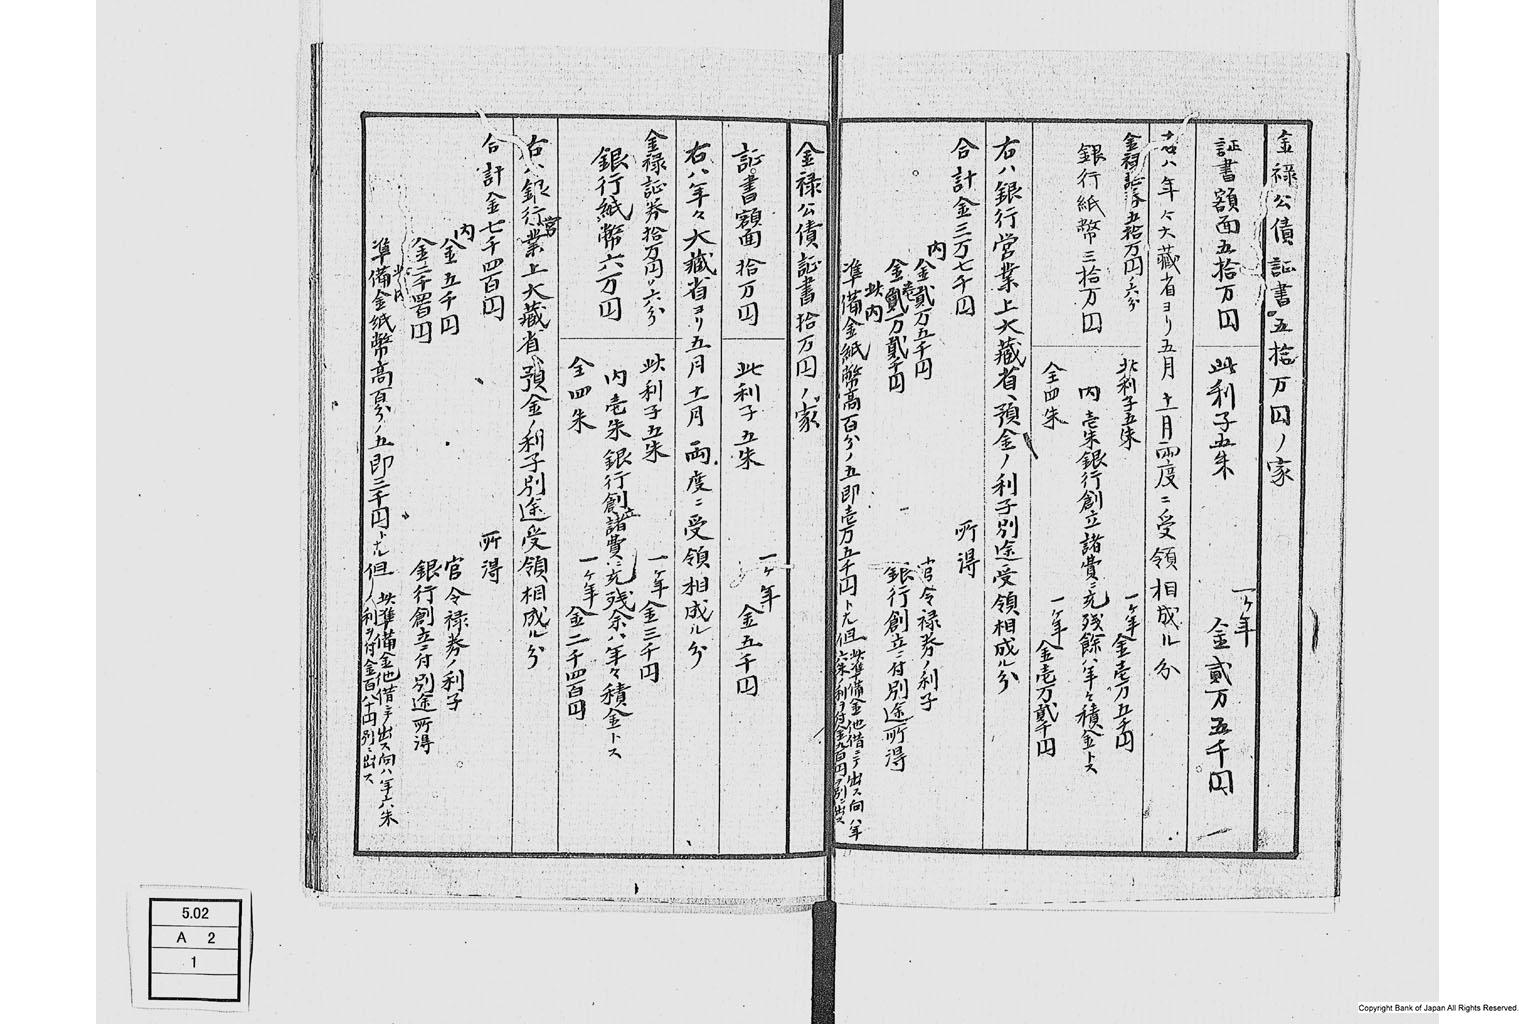 金禄公債証書五拾万円ノ家
証書額面五拾万円 此利子五朱 一ヶ年 金貳万五千円
右ハ年々大藏省ヨリ五月十一月両度ニ受領相成ル分
金禄証券五拾万円ノ六分 此利子五朱 一ヶ年 金壱万五千円
銀行紙幣三拾万円 内壱朱銀行創立諸費ニ充残餘ハ年々積金トス
仝四朱 一ヶ年 金壱万貳千円
右ハ銀行営業上大藏省預金ノ利子別途受領相成ル分
合計金三万七千円 所得
内
金貳万五千円 官令禄券ノ利子
金壱万貳千円 銀行創立ニ付別途所得
此内
準備金紙幣高百分ノ五即壱万五千円トナル但 此準備金他借ニテ出ス向ハ年
六朱ノ利ヲ付金九百円ヲ別ニ出ス
金禄公債証書拾万円ノ家
証書額面拾万円 此利子五朱 一ヶ年 金五千円
右ハ年々大藏省ヨリ五月十一月両度ニ受領相成ル分
金禄証券拾万円ノ六分 此利子五朱 一ヶ年 金三千円
銀行紙幣六万円 内壱朱銀行創立諸費ニ充残余ハ年々積金トス
仝四朱 一ヶ年 金二千四百円
右ハ銀行営業上大藏省預金ノ利子別途受領相成ル分
合計金七千四百円 所得
内
金五千円 官令禄券ノ利子
金二千四百円 銀行創立ニ付別途所得
此内
準備金紙幣高百分ノ五即三千円トナル但 此準備金他借ニテ出ス向ハ年六朱
ノ利ヲ付金百八十円別ニ出ス
5.02
A 2
1
Copyright Bank of Japan All Rights Reserved.